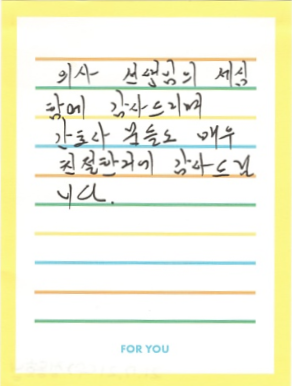 의사 선생님의 세심
함에 감사드리며
간호사 분들도 매우
친절한거에 감사드립
니다.
FOR YOU